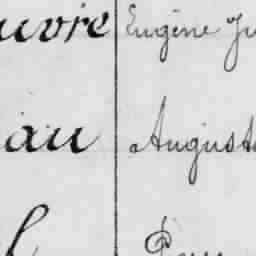 uvre Eugène Ju
au Auguste